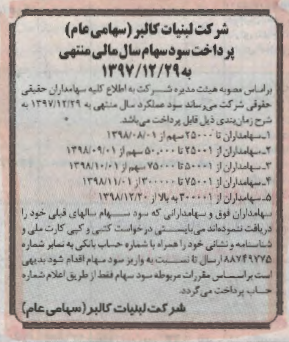 شرکت لبنیات کالبر (سهامی عام)
پرداخت سود سهام سال مالی منتهی
به ۱۳۹۷/۱۲/۲۹
براساس مصوبه هیئت مدیره شرکت به اطلاع کلیه سهامداران حقیقی
حقوقی شرکت می‌رساند سود عملکرد سال منتهی به ۱۳۹۷/۱۲/۲۹ به
شرح زمان‌بندی ذیل قابل پرداخت می‌باشد.
۱ـ سهامداران تا ۲۵۰۰۰ سهم از ۱۳۹۸/۰۸/۰۱
۲ـ سهامداران از ۲۵۰۰۱ تا ۵۰.۰۰۰ سهم از ۱۳۹۸/۰۹/۰۱
۳ـ سهامداران از ۵۰۰۰۱ تا ۷۵۰۰۰ سهم از ۱۳۹۸/۱۰/۰۱
۴ـ سهامداران از ۷۵۰۰۱ تا ۳۰۰۰۰۰ از ۱۳۹۸/۱۱/۰۱
۵ـ سهامداران از ۳۰۰۰۰۱ به بالا از ۱۳۹۸/۱۲/۲۰
سهامداران فوق و سهامدارانی که سود سهام سالهای قبلی خود را
دریافت ننموده‌اند می‌بایستی درخواست کتبی و کپی کارت ملی و
شناسنامه و نشانی خود را همراه با شماره حساب بانکی به نمابر شماره
۸۸۷۴۹۷۷۵ ارسال تا نسبت به واریز سود سهام اقدام شود بدیهی
است براساس مقررات مربوطه سود سهام فقط از طریق اعلام شماره
حساب پرداخت می‌گردد.
شرکت لبنیات کالبر (سهامی عام)